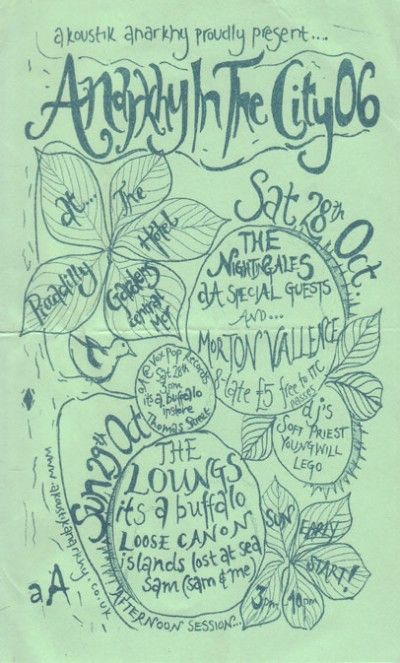 akoustik anarkhy proudly present....
Anarkhy In The City 06
at...
The
Hotel
Piccadilly
Gardens
central
Mcr
Sat 28th Oct...
THE
NIGHTINGALES
aA SPECIAL GUESTS
AND...
MORTON VALLENCE
8-late £5 free to ITC
passes
dj's
SOFT PRIEST
YOUNGWILL
LEGO
@ Vox Pop Records
Sat 28th
2pm
its a buffalo
instore
Thomas Street
Sun 29th Oct
THE
LOUNGS
its a buffalo
LOOSE CANON
islands lost at sea
Sam (sam & me)
AFTERNOON SESSION...
SUN EARLY
START!
3pm-10pm
www.akoustikanarkhy.co.uk
aA